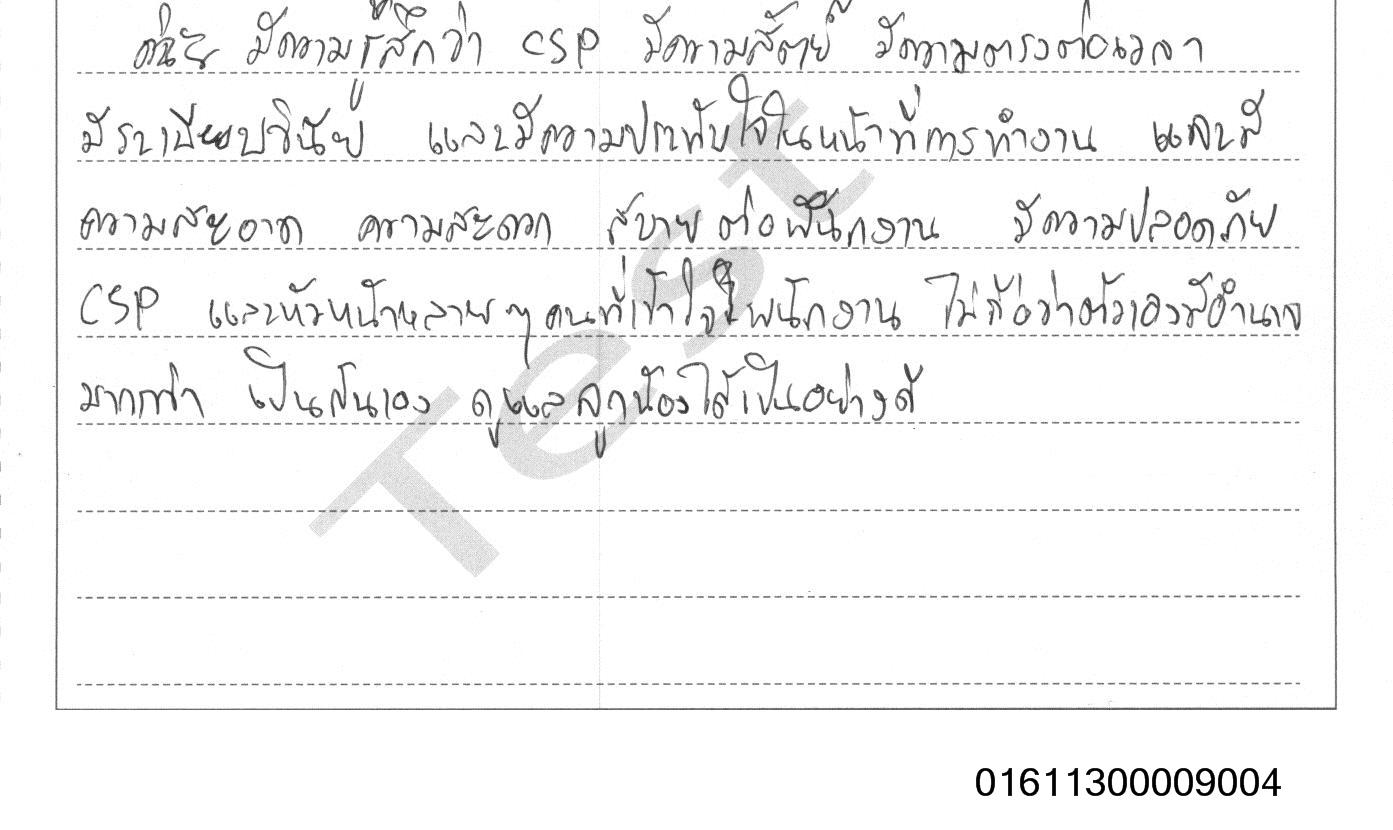 มีความรู้สึกว่า CSP มีความสัตย์ มีความตรงต่อเวลา
มีระเบียบวินัย และมีความประทับใจในหน้าที่การทำงาน และมี
ความสะอาด ความสะดวก สบายต่อพนักงาน มีความปลอดภัย
CSP และหัวหน้าหลายๆ คนที่เข้าใจพนักงาน ไม่ถือว่าตัวเองมีอำนาจ
มากกว่า เป็นกันเอง ดูแลลูกน้องได้เป็นอย่างดี
Test
01611300009004